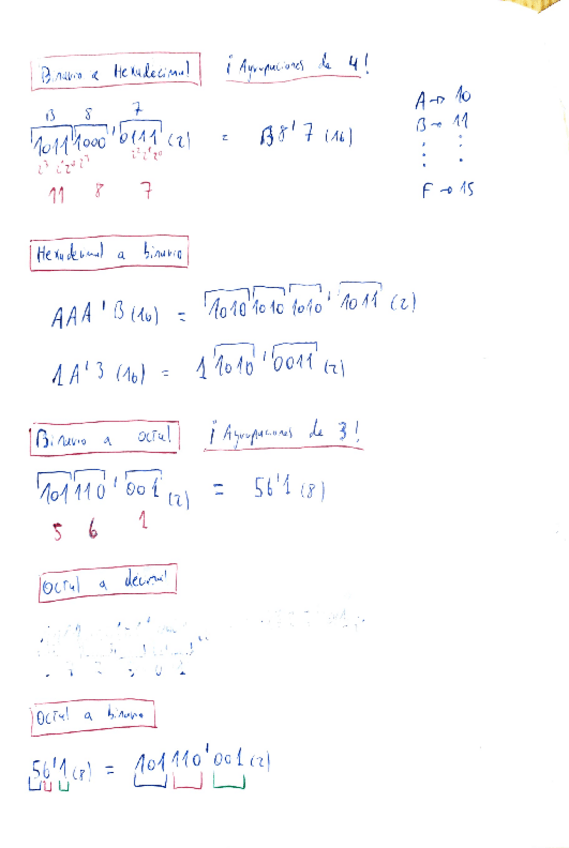 Binario a Hexadecimal ¡Agrupaciones de 4!
A → 10
B 8 7
B → 11
1011 1000 ' 0111 (2) = B8'7 (16)
2³ 2¹ 2⁰ 2³ 2² 2¹ 2⁰
F → 15
11 8 7
Hexadecimal a binario
AAA'B (16) = 1010 1010 1010 ' 1011 (2)
1A'3 (16) = 1 1010 ' 0011 (2)
Binario a octal ¡Agrupaciones de 3!
101 110 ' 001 (2) = 56'1 (8)
5 6 1
Octal a decimal
Octal a binario
56'1 (8) = 101 110 ' 001 (2)